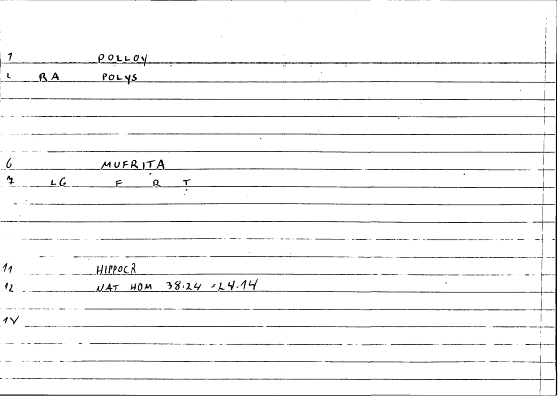 1 POLLOY
2 RA POLYS
6 MUFRITA
7 LG F R T
11 HIPPOCR
12 NAT HOM 38.24 = 24.14